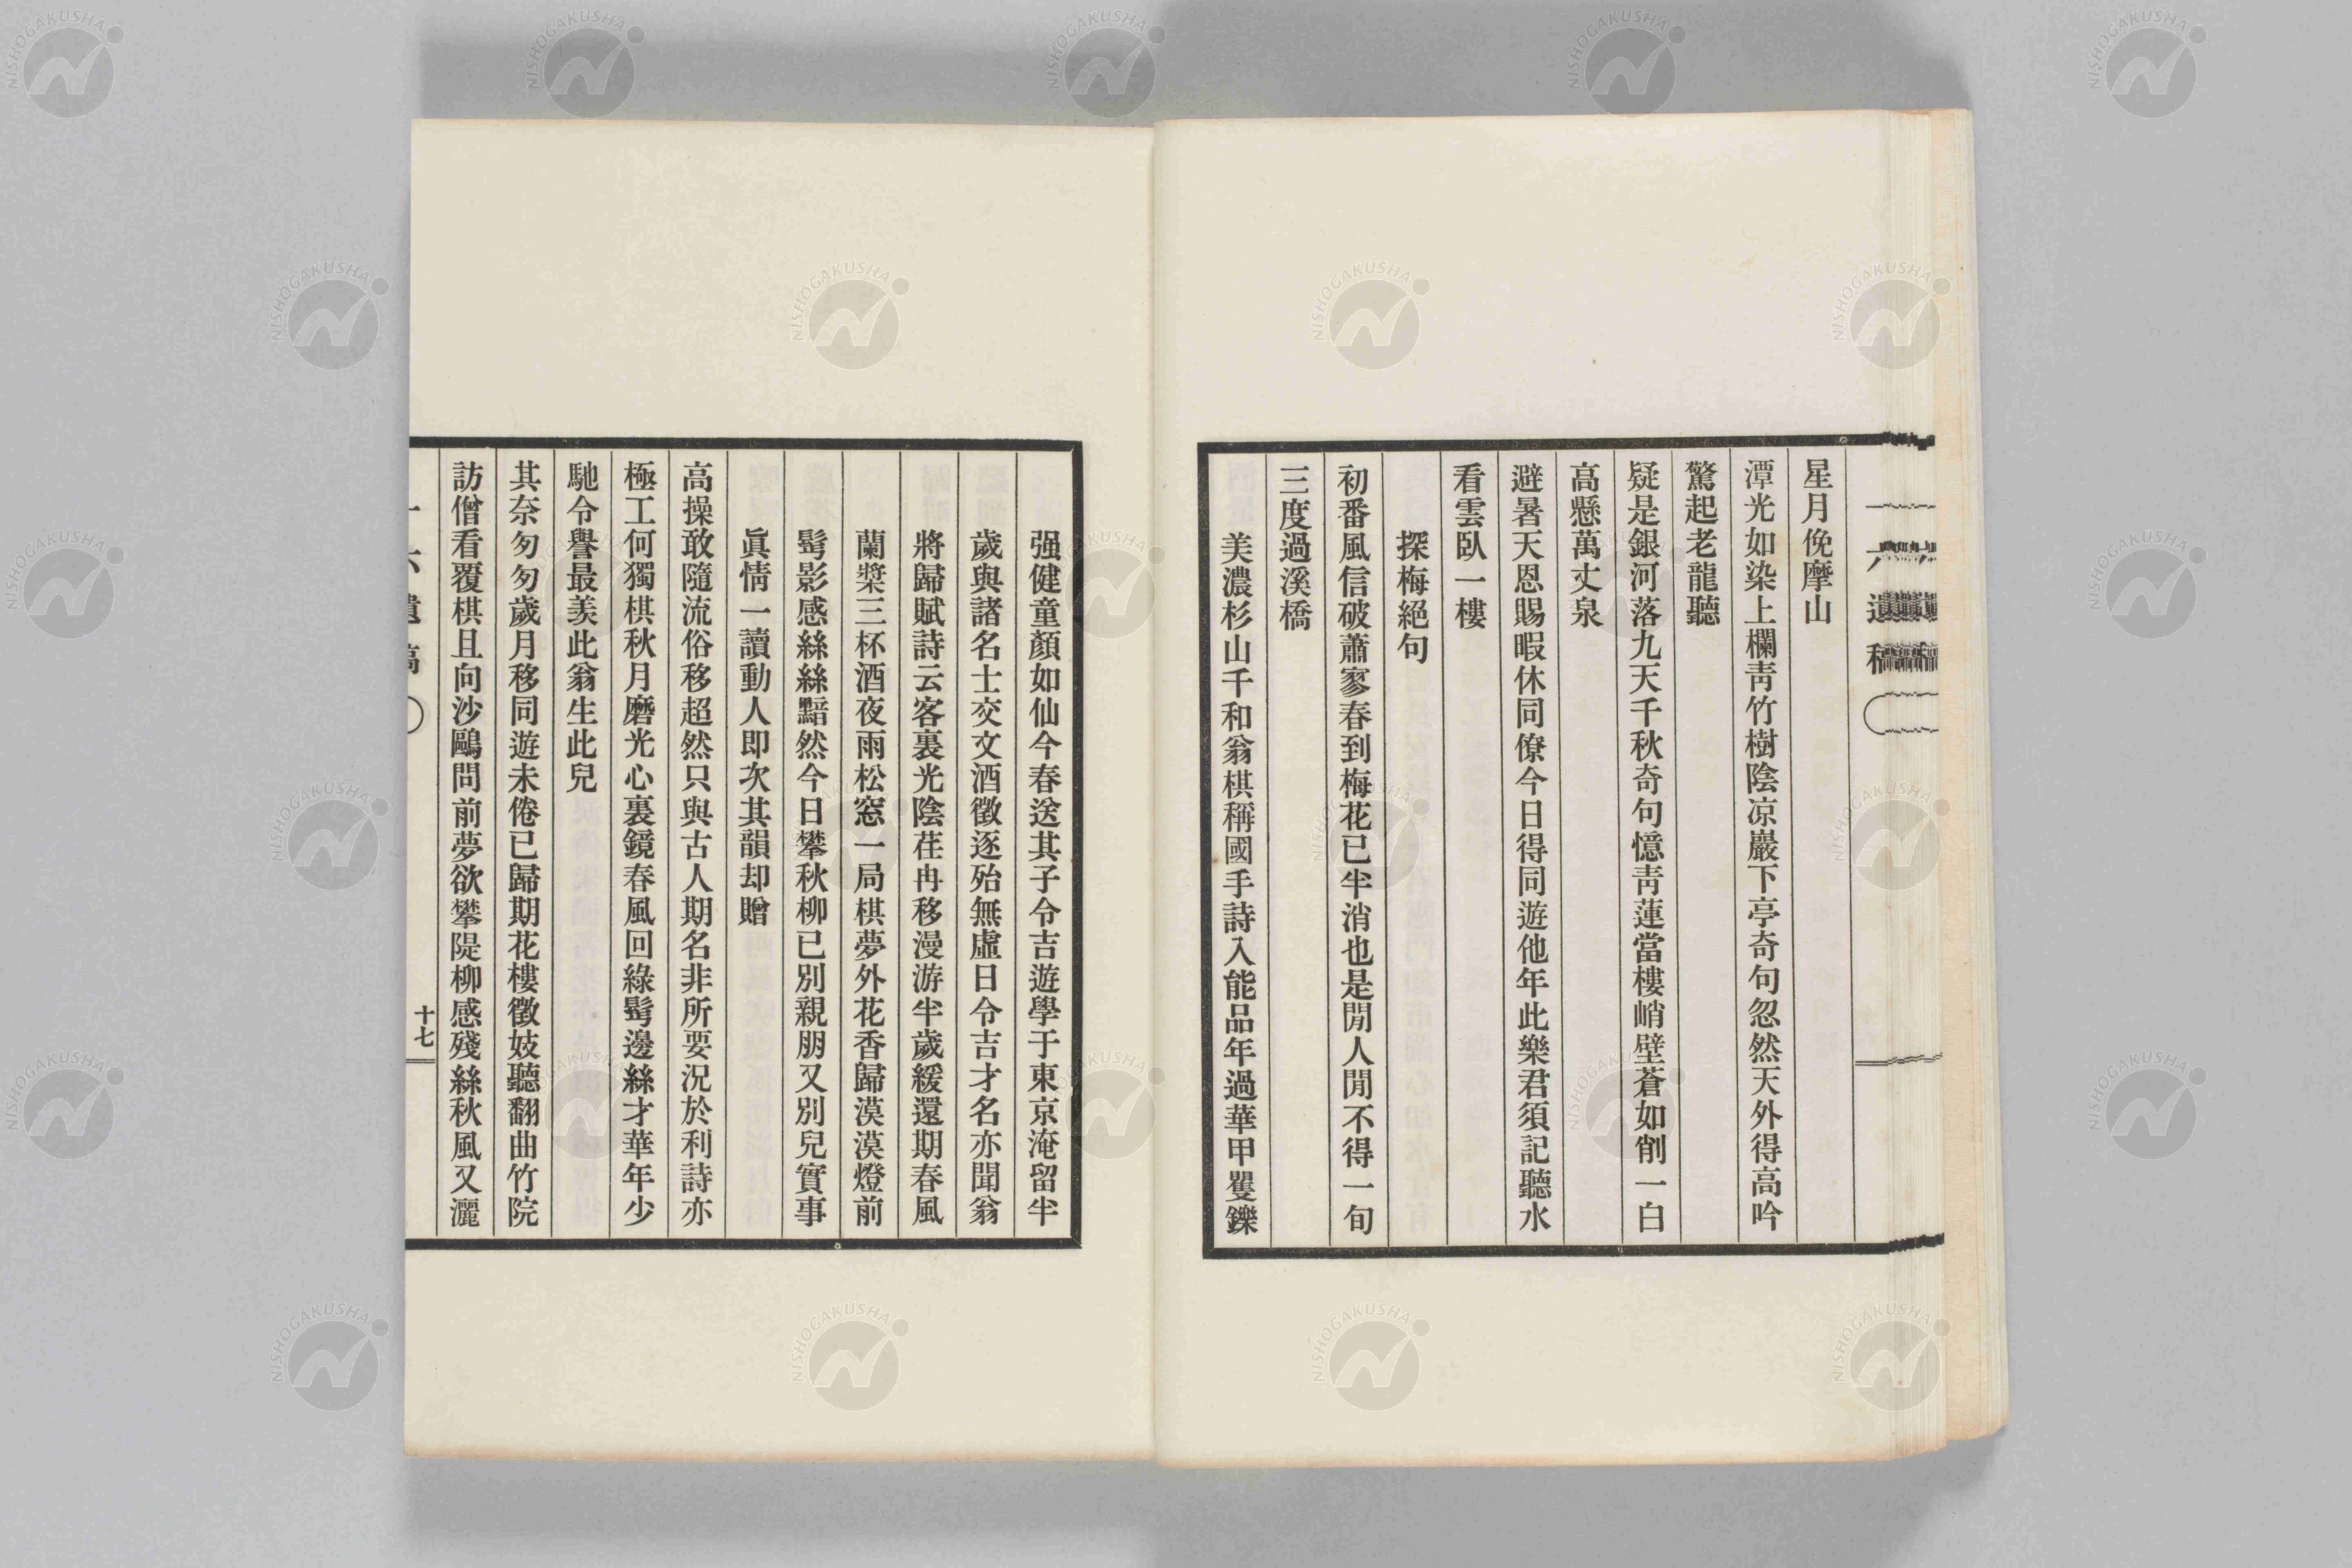 一六遺稿
星月俛摩山
潭光如染上欄靑竹樹陰凉巖下亭奇句忽然天外得高吟
驚起老龍聽
疑是銀河落九天千秋奇句憶靑蓮當樓峭壁蒼如削一白
高懸萬丈泉
避暑天恩賜暇休同僚今日得同遊他年此樂君須記聽水
看雲臥一樓
探梅絕句
初番風信破蕭寥春到梅花已半消也是閒人閒不得一旬
三度過溪橋
美濃杉山千和翁棋稱國手詩入能品年過華甲矍鑠
强健童顏如仙今春送其子令吉遊學于東京淹留半
歲與諸名士交文酒徵逐殆無虛日令吉才名亦聞翁
將歸賦詩云客裏光陰荏冉移漫游半歲緩還期春風
蘭槳三杯酒夜雨松窓一局棋夢外花香歸漠漠燈前
髩影感絲絲黯然今日攀秋柳已別親朋又別兒實事
眞情一讀動人即次其韻却贈
高操敢隨流俗移超然只與古人期名非所要況於利詩亦
極工何獨棋秋月磨光心裏鏡春風回綠髩邊絲才華年少
馳令譽最羨此翁生此兒
其奈匆匆歲月移同遊未倦已歸期花樓徵妓聽翻曲竹院
訪僧看覆棋且向沙鷗問前夢欲攀隄柳感殘絲秋風又灑
十七
NISHOGAKUSHA